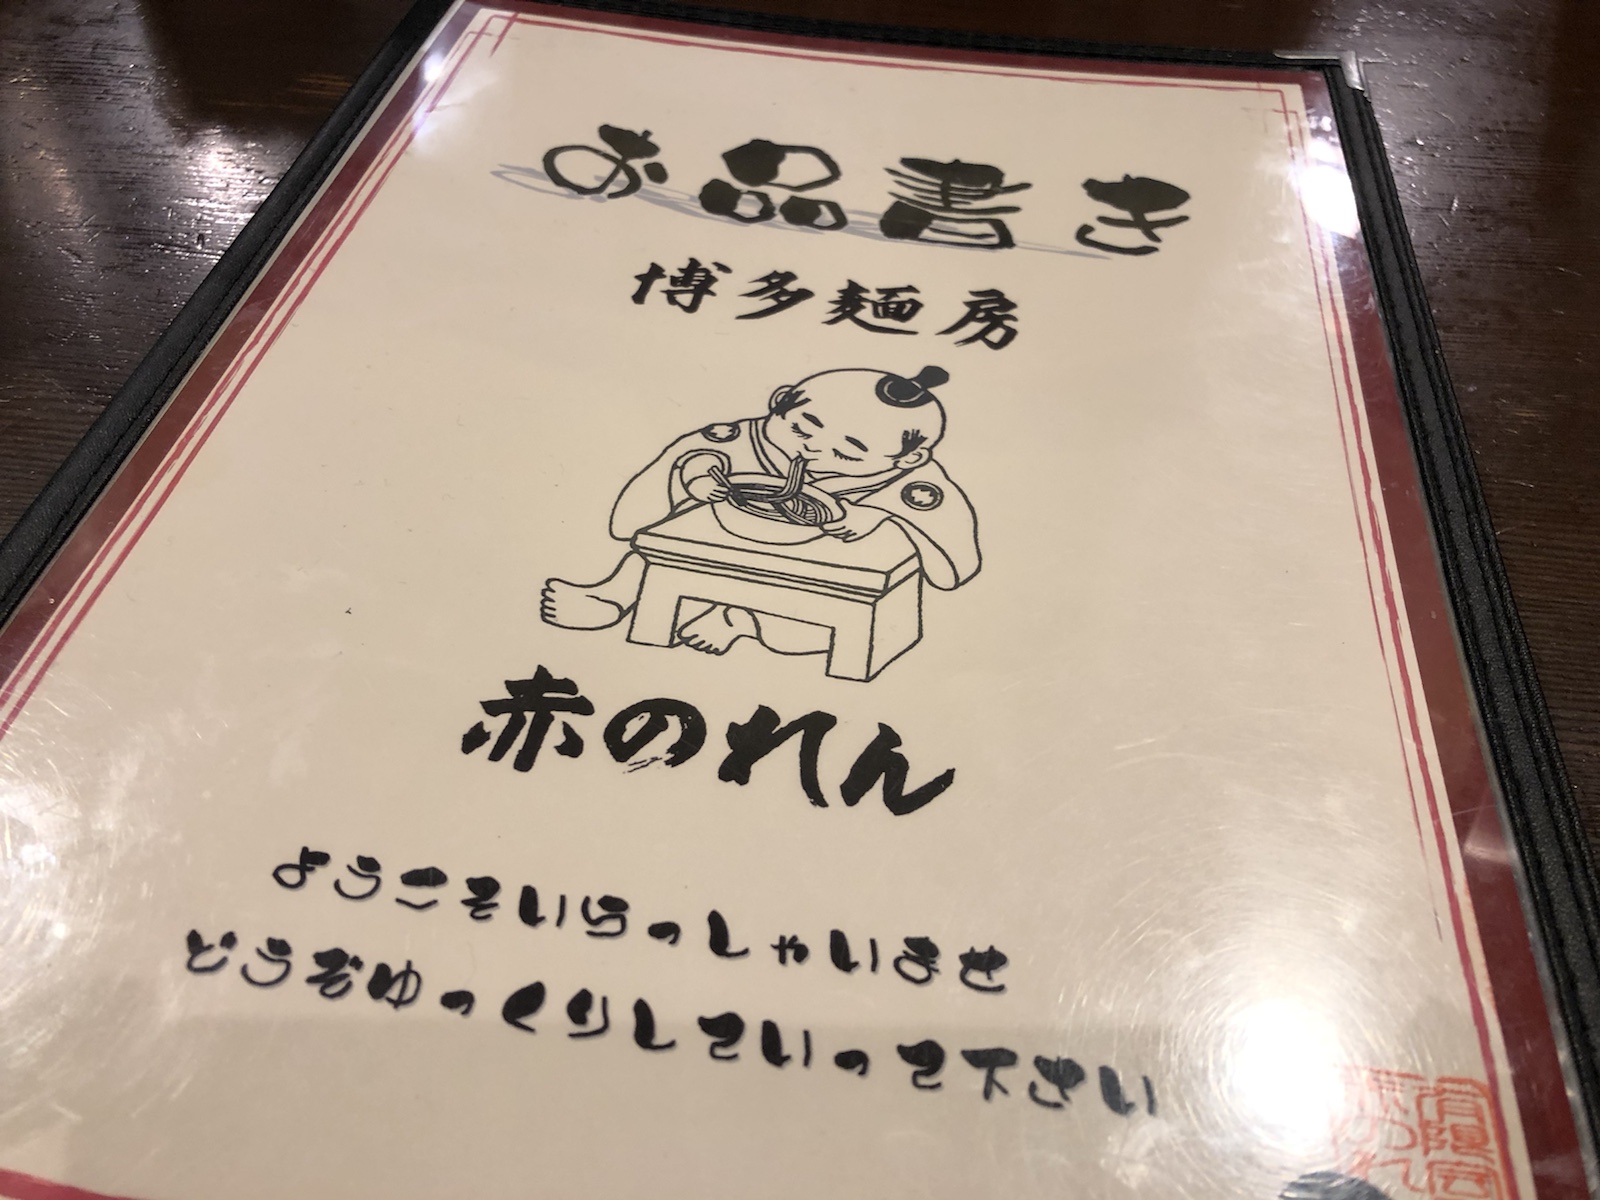 お品書き
博多麺房
赤のれん
ようこそいらっしゃいませ
どうぞゆっくりしていって下さい